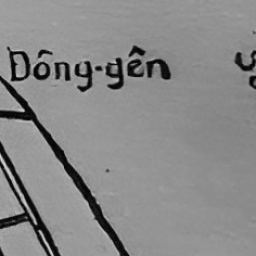 Dông-gên